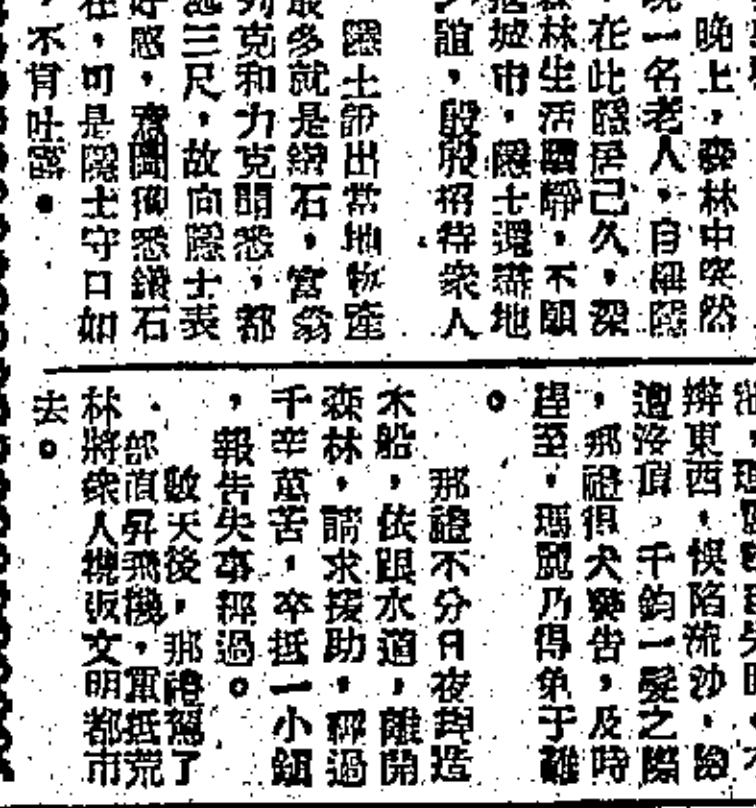 晚上，森林中突然
一名老人，自稱隱
在此隱居已久，深
林生活閒靜，不願
城市，隱士還講地
誼，殷殷招待衆人
隱士說出當地物產
最多就是鑽石，當翁
列克和力克聞悉，都
三尺，故向隱士表
好感，齊圖仰悉鑽石
在，可是隱士守口如
，不肯吐露。
辨東西，悞陷流沙，
遭沒頂，千鈞一髮之際
，那證得犬聲告，及時
趕至，瑪麗乃得免于難
。
那證不分日夜趕造
木船，依跟水道，離開
森林，請求援助，經過
千辛萬苦，卒抵一小鎮
，報告失事經過。
數天後，那證駕了
一部直昇飛機，重抵荒
林將衆人機返文明都市
去。